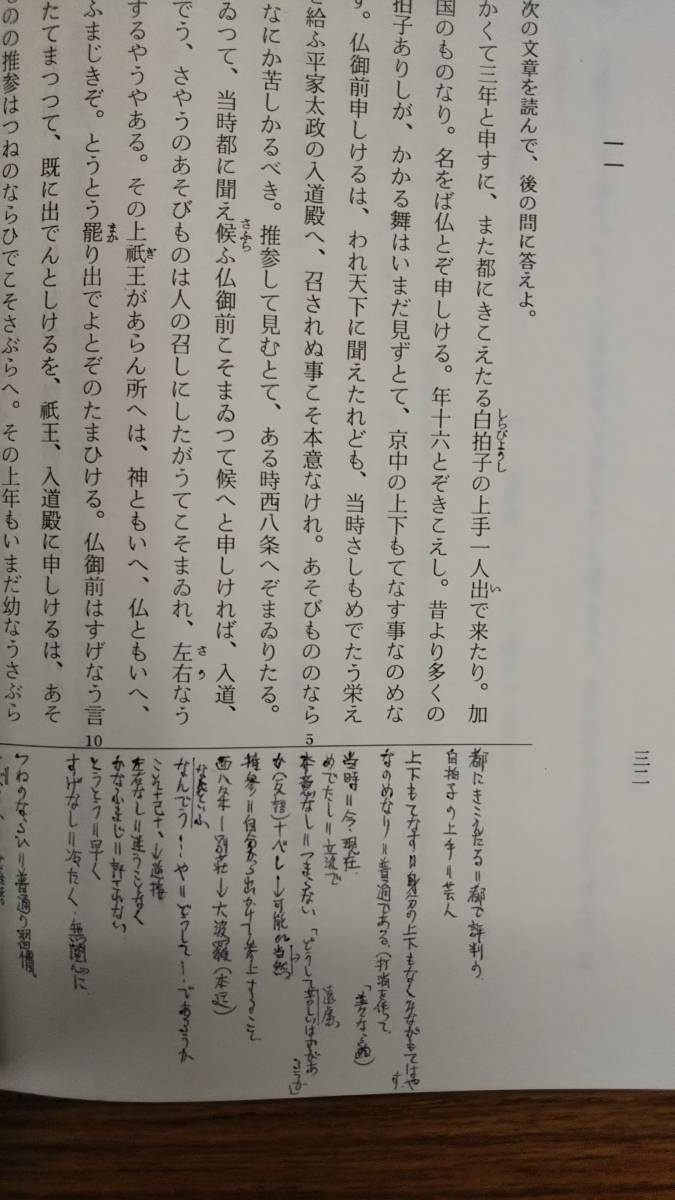 三二
一一
次の文章を読んで、後の問に答えよ。
かくて三年と申すに、また都にきこえたる白拍子の上手一人出で来たり。加
しらびょうし
い
国のものなり。名をば仏とぞ申しける。年十六とぞきこえし。昔より多くの
拍子ありしが、かかる舞はいまだ見ずとて、京中の上下もてなす事なのめな
す。仏御前申しけるは、われ天下に聞えたれども、当時さしもめでたう栄え
給ふ平家太政の入道殿へ、召されぬ事こそ本意なけれ。あそびもののなら
5
なにか苦しかるべき。推参して見むとて、ある時西八条へぞまゐりたる。
ゐつて、当時都に聞え候ふ仏御前こそまゐつて候へと申しければ、入道、
さふら
でう、さやうのあそびものは人の召しにしたがうてこそまゐれ、左右なう
さう
するやうやある。その上祇王があらん所へは、神ともいへ、仏ともいへ、
ぎ
ふまじきぞ。とうとう罷り出でよとぞのたまひける。仏御前はすげなう言
まか
10
たてまつつて、既に出でんとしけるを、祇王、入道殿に申しけるは、あそ
ものの推参はつねのならひでこそさぶらへ。その上年もいまだ幼なうさぶら
都にきこえたる＝都で評判の
白拍子の上手＝芸人
上下もてなす＝身分の上下もなくみながもてはやす
なのめなり＝普通である。(打消を伴って
「並々ならぬ」)
当時＝今、現在
めでたし＝立派で
本意なし＝つまらない「どうして苦しいはずがあろうか」
遠慮
か(反語)＋べし→可能か当然
推参＝自分から出かけて参上すること
西八条―別荘→六波羅(本邸)
なんでう…や＝どうして…であろうか
なにといふ
こそ+已+、→逆接
左右なし＝迷うことなく
かなふまじ＝許されない
とうとう＝早く
すげなし＝冷たく、無関心に
つねのならひ＝普通の習慣